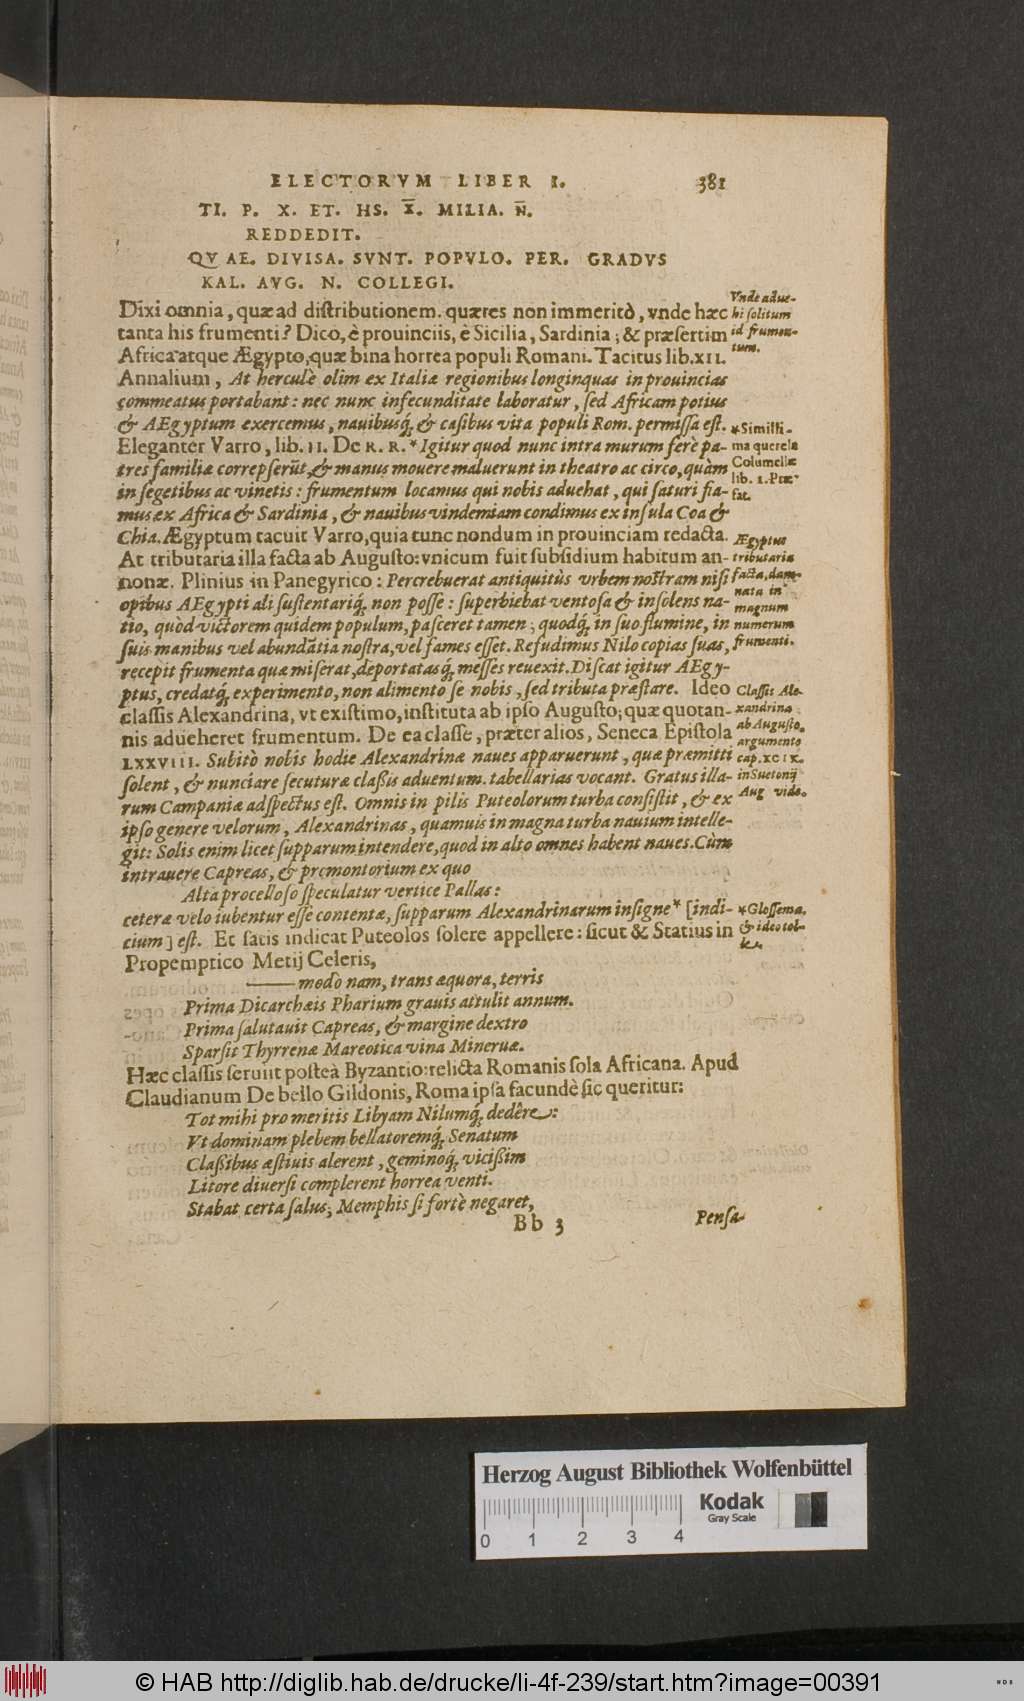 ELECTORVM LIBER I. 381
TI. P. X. ET. HS. X̅. MILIA. N̅.
REDDEDIT.
QVAE. DIVISA. SVNT. POPVLO. PER. GRADVS
KAL. AVG. N. COLLEGI.
Dixi omnia, quæ ad distributionem. quæres non immeritò, vnde hæc
tanta his frumenti? Dico, è prouinciis, è Sicilia, Sardinia; & præsertim
Africa atque Ægypto, quæ bina horrea populi Romani. Tacitus lib. XII.
Annalium, At herculè olim ex Italiæ regionibus longinquas in prouincias
commeatus portabant: nec nunc infecunditate laboratur, sed Africam potius
& AEgyptum exercemus, nauibusq́; & casibus vita populi Rom. permissa est.
Eleganter Varro, lib. II. De R. R. * Igitur quod nunc intra murum ferè pa-
tres familiæ correpserũt, & manus mouere maluerunt in theatro ac circo, quàm
in segetibus ac vinetis: frumentum locamus qui nobis aduehat, qui saturi fia-
mus ex Africa & Sardinia, & nauibus vindemiam condimus ex insula Coa &
Chia. Ægyptum tacuit Varro, quia tunc nondum in prouinciam redacta.
At tributaria illa facta ab Augusto: vnicum fuit subsidium habitum an-
nonæ. Plinius in Panegyrico: Percrebuerat antiquitùs vrbem nostram nisi
opibus AEgypti ali sustentariq́; non posse: superbiebat ventosa & insolens na-
tio, quòd victorem quidem populum, pasceret tamen; quodq́; in suo flumine, in
suis manibus vel abundãtia nostra, vel fames esset. Refudimus Nilo copias suas,
recepit frumenta quæ miserat, deportatasq́; messes reuexit. Discat igitur AEgy-
ptus, credatq́; experimento, non alimento se nobis, sed tributa præstare. Ideo
classis Alexandrina, vt existimo, instituta ab ipso Augusto; quæ quotan-
nis adueheret frumentum. De ea classe, præter alios, Seneca Epistola
LXXVIII. Subitò nobis hodie Alexandrinæ naues apparuerunt, quæ præmitti
solent, & nunciare secuturæ classis aduentum. tabellarias vocant. Gratus illa-
rum Campaniæ adspectus est. Omnis in pilis Puteolorum turba consistit, & ex
ipso genere velorum, Alexandrinas, quamuis in magna turba nauium intelle-
git: Solis enim licet supparum intendere, quod in alto omnes habent naues. Cùm
intrauere Capreas, & promontorium ex quo
Alta procelloso speculatur vertice Pallas:
ceteræ velo iubentur esse contentæ, supparum Alexandrinarum insigne* [indi-
cium] est. Et satis indicat Puteolos solere appellere: sicut & Statius in
Propemptico Metij Celeris,
—— modo nam, trans æquora, terris
Prima Dicarchæis Pharium grauis attulit annum.
Prima salutauit Capreas, & margine dextro
Sparsit Thyrrenæ Mareotica vina Mineruæ.
Hæc classis seruiit posteà Byzantio: relicta Romanis sola Africana. Apud
Claudianum De bello Gildonis, Roma ipsa facundè sic queritur:
Tot mihi pro meritis Libyam Nilumq́; dedêre:
Vt dominam plebem bellatoremq́; Senatum
Classibus æstiuis alerent, geminoq́; vicissim
Litore diuersi complerent horrea venti.
Stabat certa salus; Memphis si fortè negaret,
Bb 3 Pensa-
Vnde adue-
hi solitum
id frumen-
tum.
*Similli-
ma querela
Columellæ
lib. 1. Præ-
fat.
Ægyptus
tributaria
facta, dam-
nata in
magnum
numerum
frumenti.
Classis Ale-
xandrina
ab Augusto.
argumento
cap. XCIX.
in Suetonij
Aug vide.
*Glossema.
& ideo tol-
le.
Herzog August Bibliothek Wolfenbüttel
Kodak
Gray Scale
0 1 2 3 4
© HAB http://diglib.hab.de/drucke/li-4f-239/start.htm?image=00391